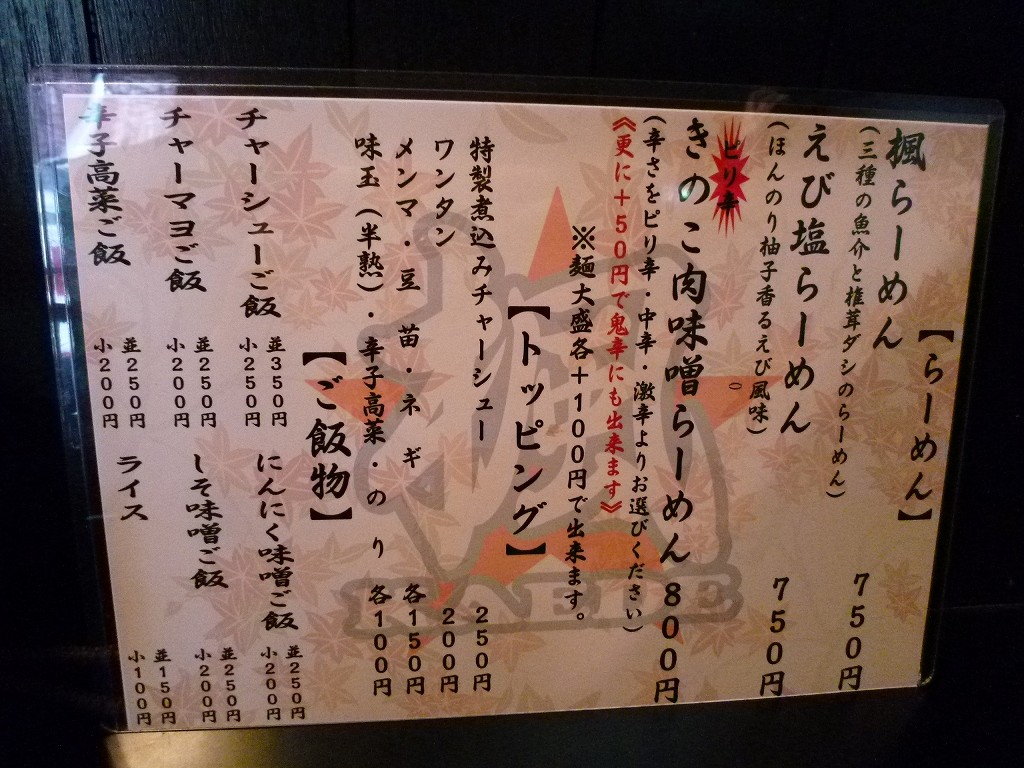 【らーめん】
楓らーめん 750円
(三種の魚介と椎茸ダシのらーめん)
えび塩らーめん 750円
(ほんのり柚子香るえび風味)
ピリ辛
きのこ肉味噌らーめん 800円
(辛さをピリ辛・中辛・激辛よりお選びください)
《更に+50円で鬼辛にも出来ます》
※麺大盛各+100円で出来ます。
【トッピング】
特製煮込みチャーシュー 250円
ワンタン 200円
メンマ・豆苗・ネギ 各150円
味玉(半熟)・辛子高菜・のり 各100円
【ご飯物】
チャーシューご飯 並350円 小250円
チャーマヨご飯 並250円 小200円
辛子高菜ご飯 並250円 小200円
にんにく味噌ご飯 並250円 小200円
しそ味噌ご飯 並250円 小200円
ライス 並150円 小100円
楓
KAEDE